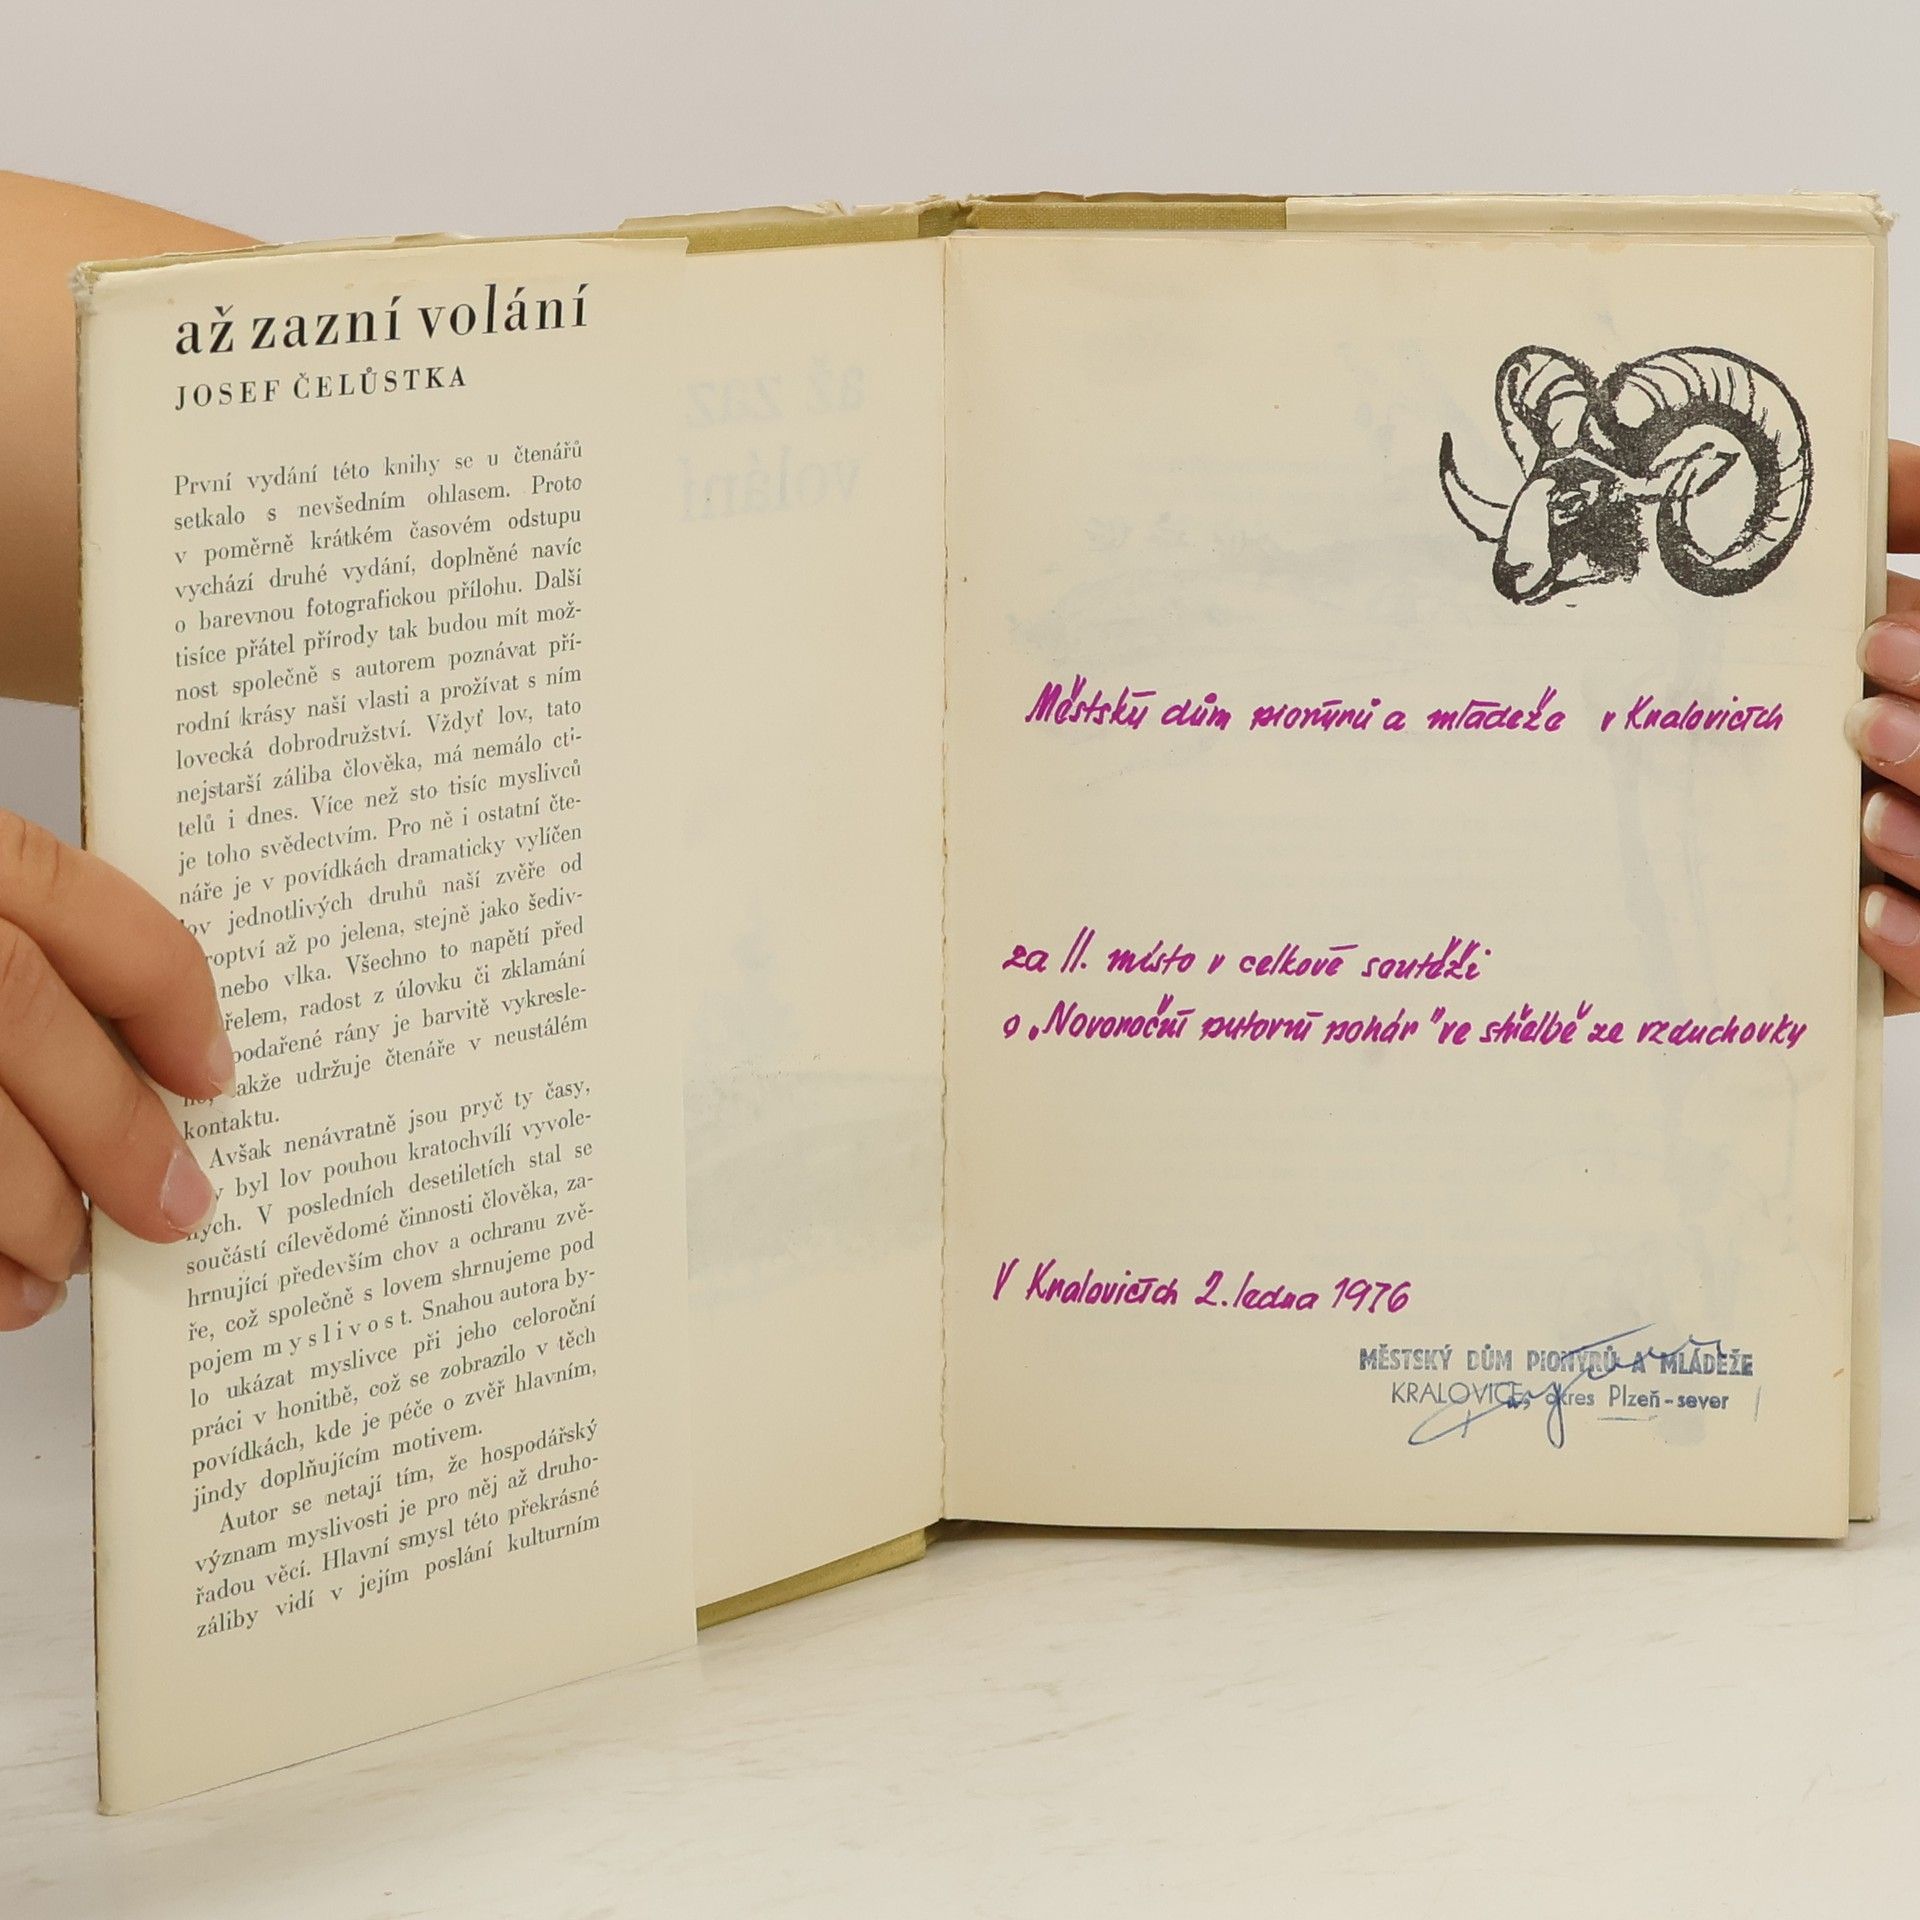 až zazní volání
JOSEF ČELŮSTKA
První vydání této knihy se u čtenářů
setkalo s nevšedním ohlasem. Proto
v poměrně krátkém časovém odstupu
vychází druhé vydání, doplněné navíc
o barevnou fotografickou přílohu. Další
tisíce přátel přírody tak budou mít mož-
nost společně s autorem poznávat pří-
rodní krásy naší vlasti a prožívat s ním
lovecká dobrodružství. Vždyť lov, tato
nejstarší záliba člověka, má nemálo cti-
telů i dnes. Více než sto tisíc myslivců
je toho svědectvím. Pro ně i ostatní čte-
náře je v povídkách dramaticky vylíčen
lov jednotlivých druhů naší zvěře od
roptví až po jelena, stejně jako šediv-
nebo vlka. Všechno to napětí před
řelem, radost z úlovku či zklamání
podařené rány je barvitě vykresle-
no, takže udržuje čtenáře v neustálém
kontaktu.
Avšak nenávratně jsou pryč ty časy,
y byl lov pouhou kratochvílí vyvole-
ných. V posledních desetiletích stal se
součástí cílevědomé činnosti člověka, za-
hrnující především chov a ochranu zvě-
ře, což společně s lovem shrnujeme pod
pojem myslivost. Snahou autora by-
lo ukázat myslivce při jeho celoroční
práci v honitbě, což se zobrazilo v těch
povídkách, kde je péče o zvěř hlavním,
jindy doplňujícím motivem.
Autor se netají tím, že hospodářský
význam myslivosti je pro něj až druho-
řadou věcí. Hlavní smysl této překrásné
záliby vidí v jejím poslání kulturním
až zaz
volání
Městský dům pionýrů a mládeže v Kralovicích
za II. místo v celkové soutěži
o „Novoroční putovní pohár" ve střelbě ze vzduchovky
V Kralovicích 2. ledna 1976
MĚSTSKÝ DŮM PIONÝRŮ A MLÁDEŽE
KRALOVICE, okres Plzeň-sever